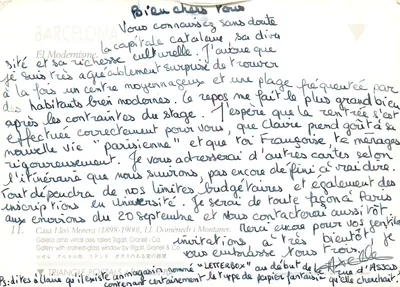 Bien chers tous
BARCELONA
Vous connaissez sans doute
El Modernisme.
la capitale catalane, sa diver
sité et sa richesse culturelle. J'avoue que
je suis très agréablement surprise de trouver
à la fois un centre moyennageux et une plage fréquentée par
des habitants bien modernes. Le repos me fait le plus grand bien
après les contraintes du stage. J'espère que la rentrée s'est
effectuée correctement pour vous, que Claire prend goût à sa
nouvelle vie "parisienne" et que toi Françoise, te ménages
rigoureusement. Je vous adresserai d'autres cartes selon
l'itinéraire que nous suivrons, pas encore défini à vrai dire.
Tout dépendra de nos limites budgétaires et également des
inscriptions en Université. Je serai de toute façon à Paris
aux environs du 20 septembre et vous contacterai aussitôt.
11. Casa Lleó Morera (1898-1906), Ll. Domènech i Montaner.
encore pour vos gentilles
invitations, à très bientôt, je
vous embrasse tous trois,
Axelle
TRIANGLE POSTALS
Ps: dites à Claire qu'il existe un magasin nommé "LETTERBOX" au début de la rue d'Assas
contenant certainement le type de papier fantaisie qu'elle cherchait.